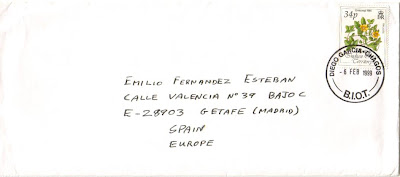 34p
DIEGO GARCIA - CHAGOS
- 6 FEB 1999
B.I.O.T.
EMILIO FERNANDEZ ESTEBAN
CALLE VALENCIA Nº 39 BAJO C
E-28903 GETAFE (MADRID)
SPAIN
EUROPE